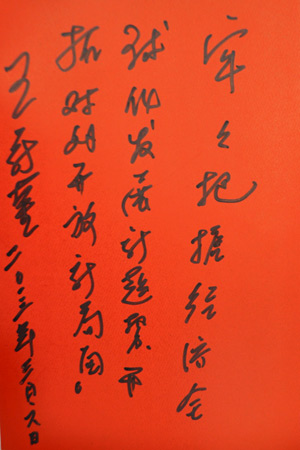 牢々把握经济全
球化发展新趋势开
拓对外开放新局面。
王新奎 二〇一三年三月八日